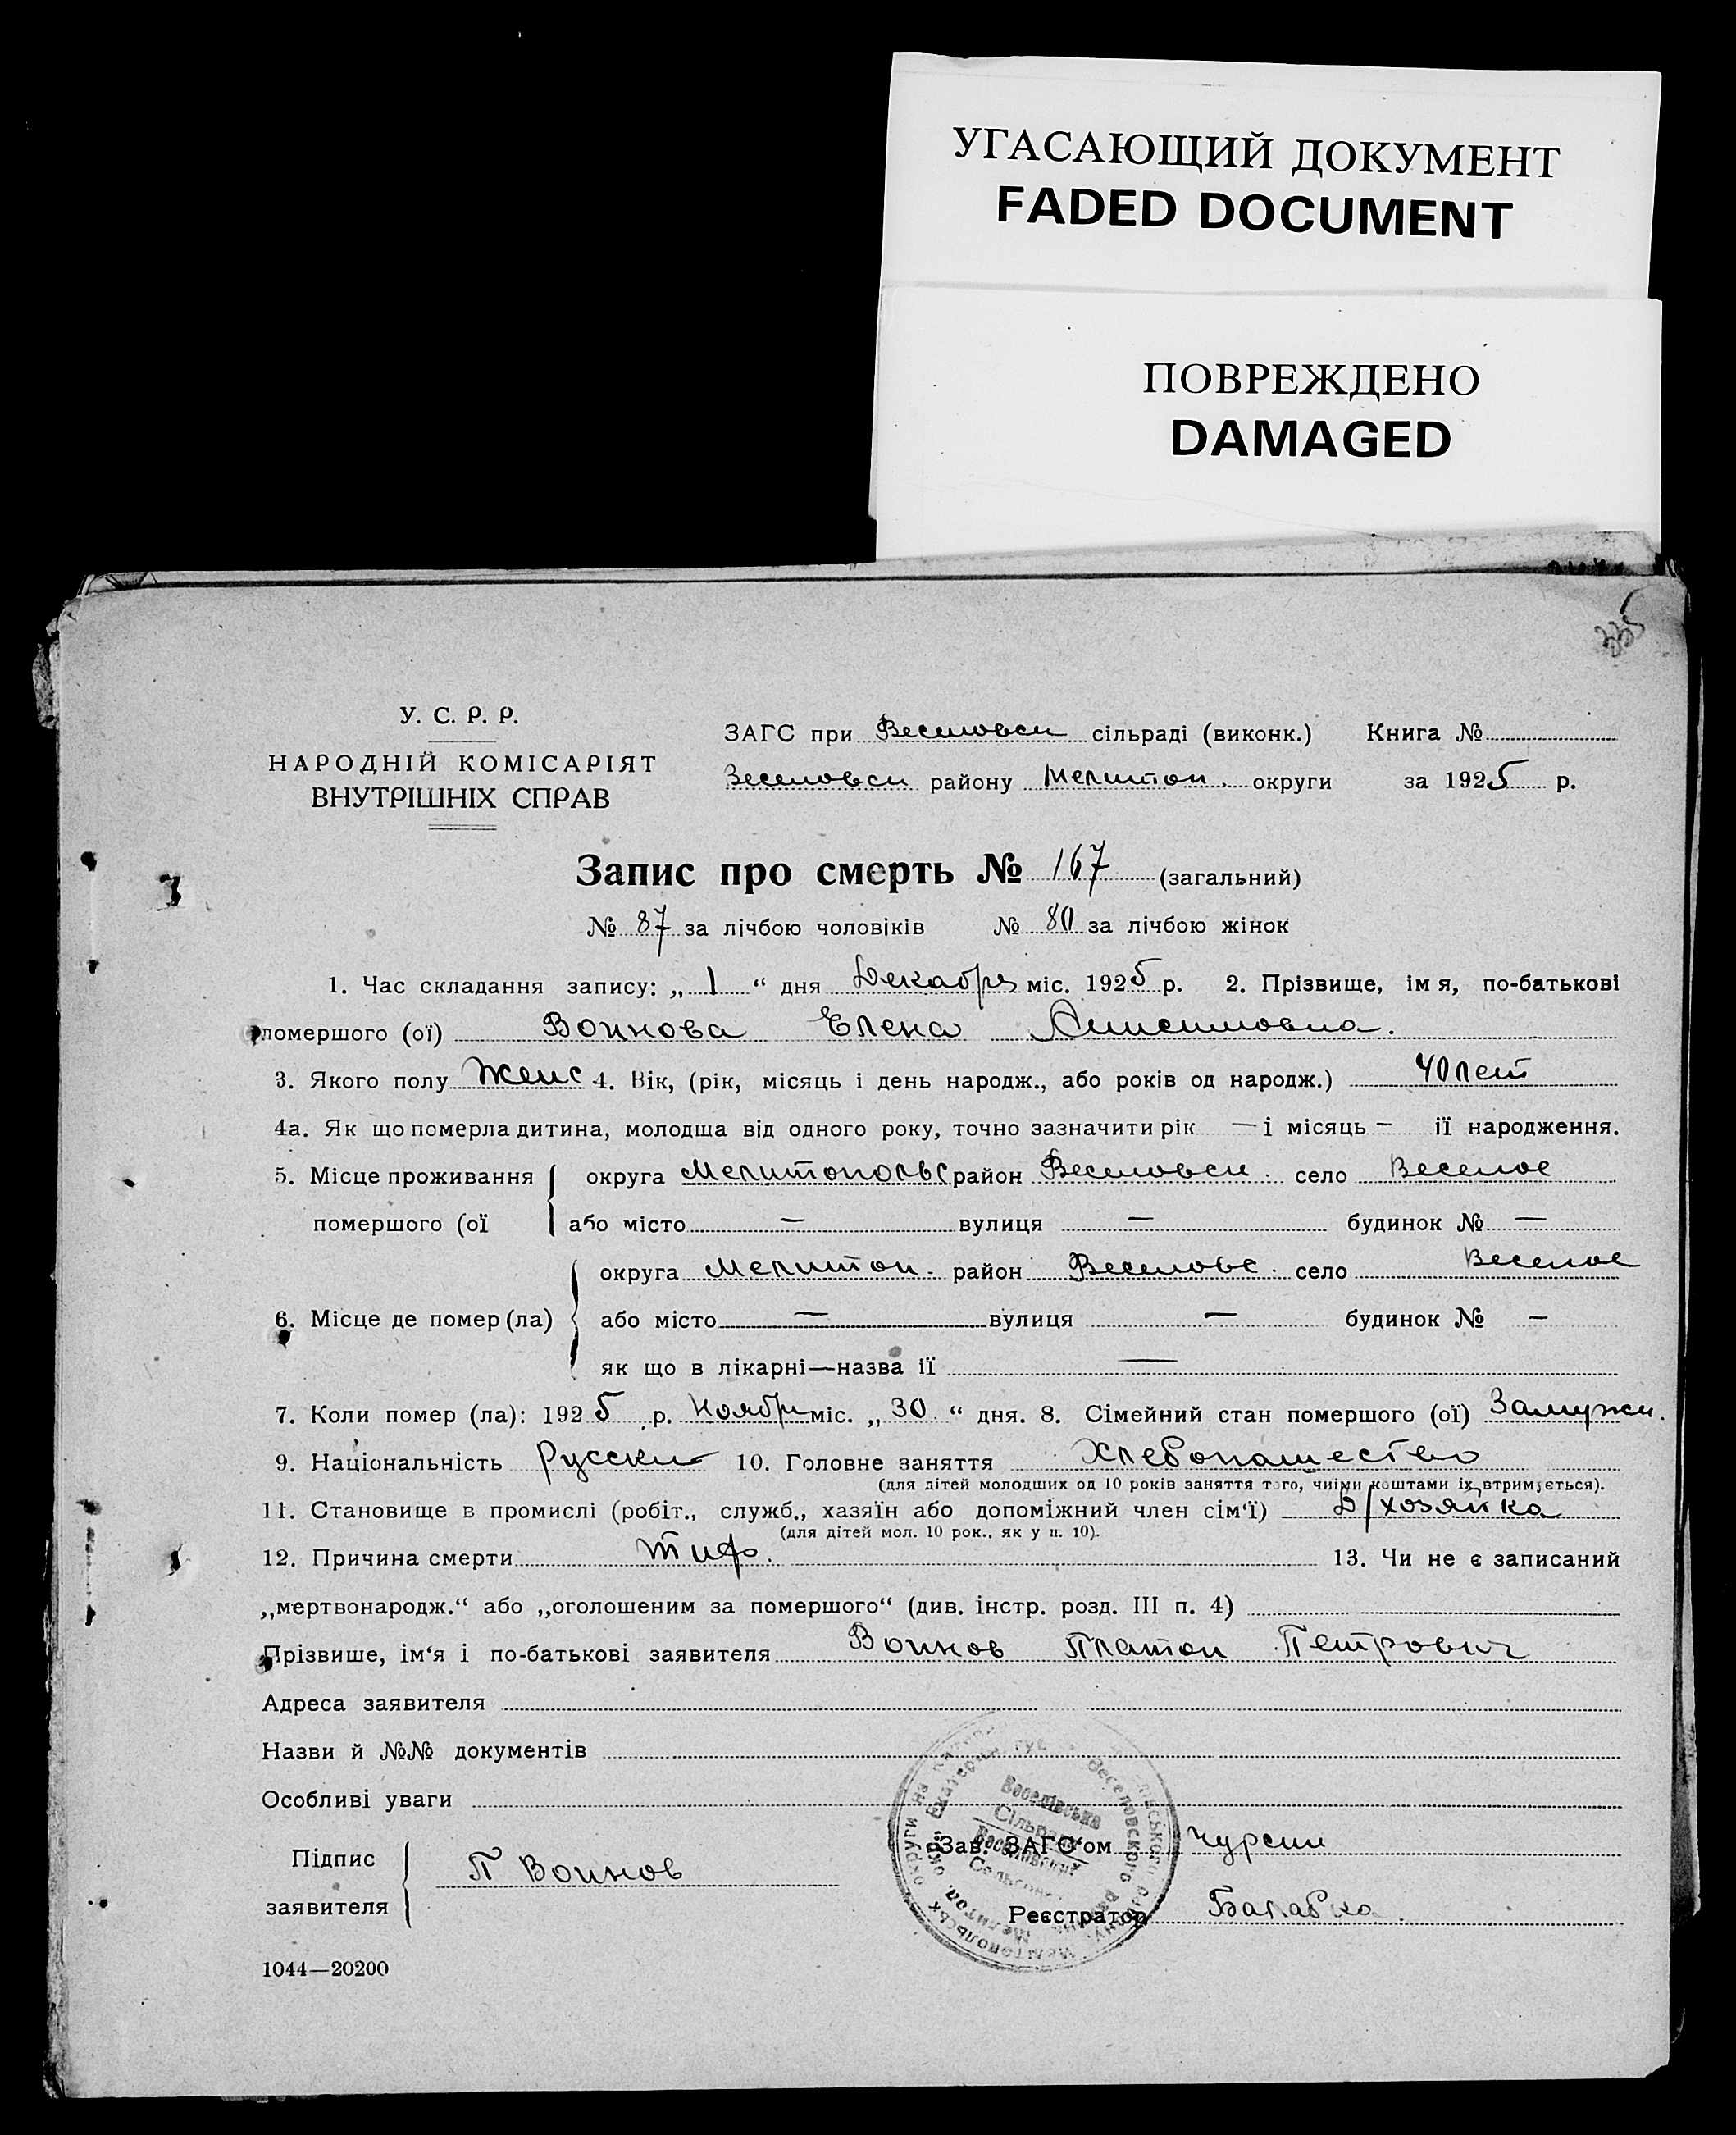 УГАСАЮЩИЙ ДОКУМЕНТ
FADED DOCUMENT
ПОВРЕЖДЕНО
DAMAGED
335
У. С. Р. Р.
НАРОДНІЙ КОМІСАРІЯТ
ВНУТРІШНІХ СПРАВ
ЗАГС при Веселовск сільраді (виконк.) Книга №
Веселовск району Мелитоп. округи за 1925 р.
Запис про смерть № 167 (загальний)
№ 87 за лічбою чоловіків № 80 за лічбою жінок
1. Час складання запису: „ 1 “ дня Декабря міс. 1925 р. 2. Прізвище, імя, по-батькові
помершого (ої) Воинова Елена Анисимовна.
3. Якого полу Женс 4. Вік, (рік, місяць і день народж., або років од народж.) 40 лет
4а. Як що померла дитина, молодша від одного року, точно зазначити рік — і місяць — ії народження.
5. Місце проживання округа Мелитопольс район Веселовск. село Веселое
помершого (ої або місто — вулиця — будинок № —
округа Мелитоп. район Веселовс. село Веселое
6. Місце де помер (ла) або місто — вулиця — будинок № —
як що в лікарні—назва ії —
7. Коли помер (ла): 1925 р. Ноябри міс. „ 30 “ дня. 8. Сімейний стан помершого (ої) Замужн.
9. Національність Русский 10. Головне заняття Хлебопашество
(для дітей молодших од 10 років заняття того, чиїми коштами іх втримується).
11. Становище в промислі (робіт., служб., хазяїн або допоміжний член сім‘ї) Д/хозяйка
(для дітей мол. 10 рок., як у п. 10).
12. Причина смерти Тиф. 13. Чи не є записаний
„мертвонародж.“ або „оголошеним за помершого“ (див. інстр. розд. III п. 4)
Прізвише, ім‘я і по-батькові заявителя Воинов Платон Петрович
Адреса заявителя
Назви й №№ документів
Особливі уваги
Підпис
заявителя П Воинов
Зав. ЗАГС‘ом Чурсин
Реєстратор
Веселівська
Сільрада
1044—20200